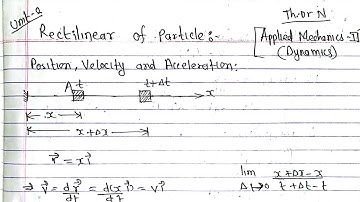 Unit-2
Th:Dr N
Rectilinear of Particle:-
[Applied Mechanics-II
(Dynamics)]
Position, Velocity and Acceleration:
A t t+Δt
x
x
x+Δx
r⃗ = xi⃗
⇒ v⃗ = dr⃗/dt = d(xi⃗)/dt = vi⃗
lim Δt→0 x+Δx-x / t+Δt-t